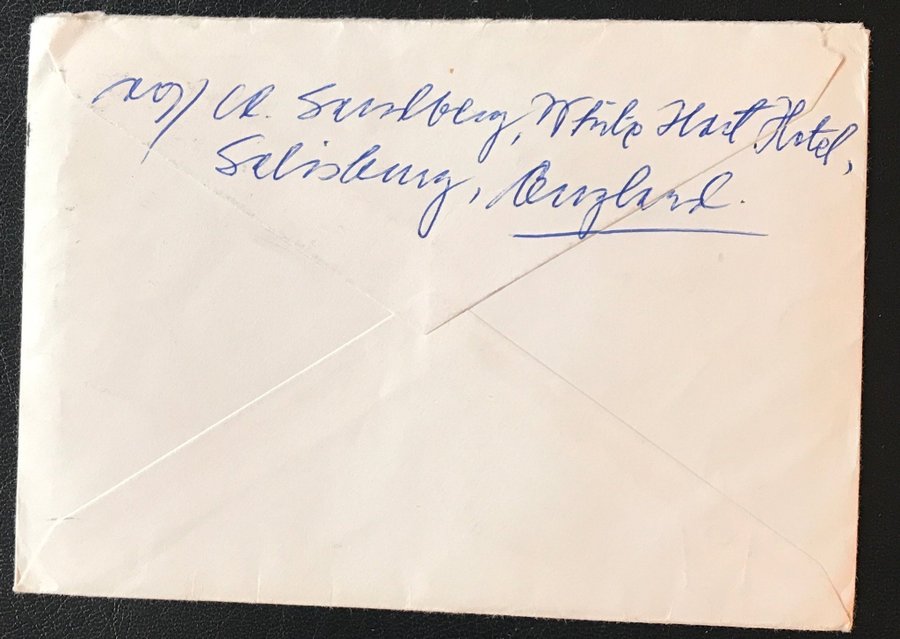 Sandberg, White Hart Hotel,
Salisbury, England.